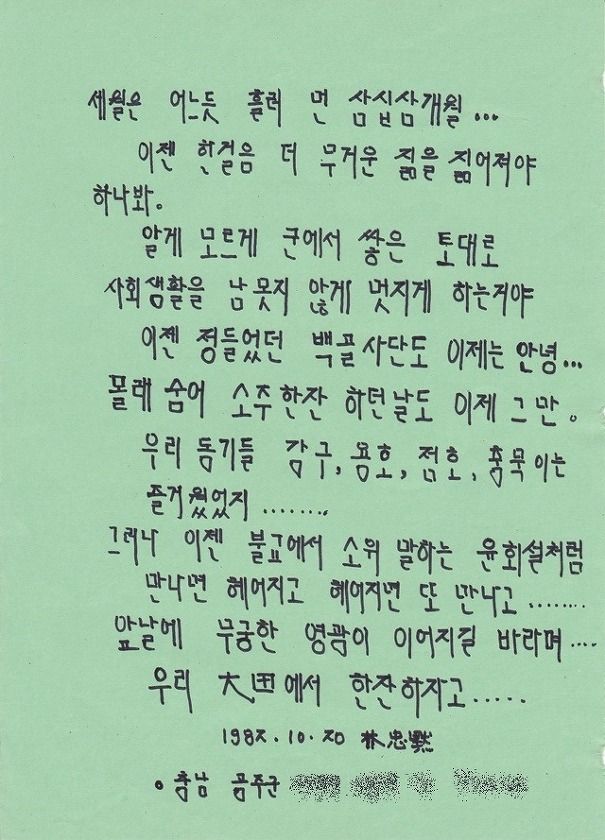 세월은 어느듯 흘러 먼 삼십삼개월...
이젠 한걸음 더 무거운 짊을 짊어져야
하나봐.
알게 모르게 군에서 쌓은 토대로
사회생활을 남못지 않게 멋지게 하는거야
이젠 정들었던 백골사단도 이제는 안녕...
몰래 숨어 소주한잔 하던날도 이제 그만.
우리 동기들 감구, 용호, 점호, 충묵이는
즐거웠었지 ........
그러나 이젠 불교에서 소위 말하는 윤회설처럼
만나면 헤어지고 헤어지면 또 만나고 ........
앞날에 무궁한 영광이 이어지길 바라며 ....
우리 大田에서 한잔하자고 .....
1982. 10. 20 林忠黙
충남 공주군